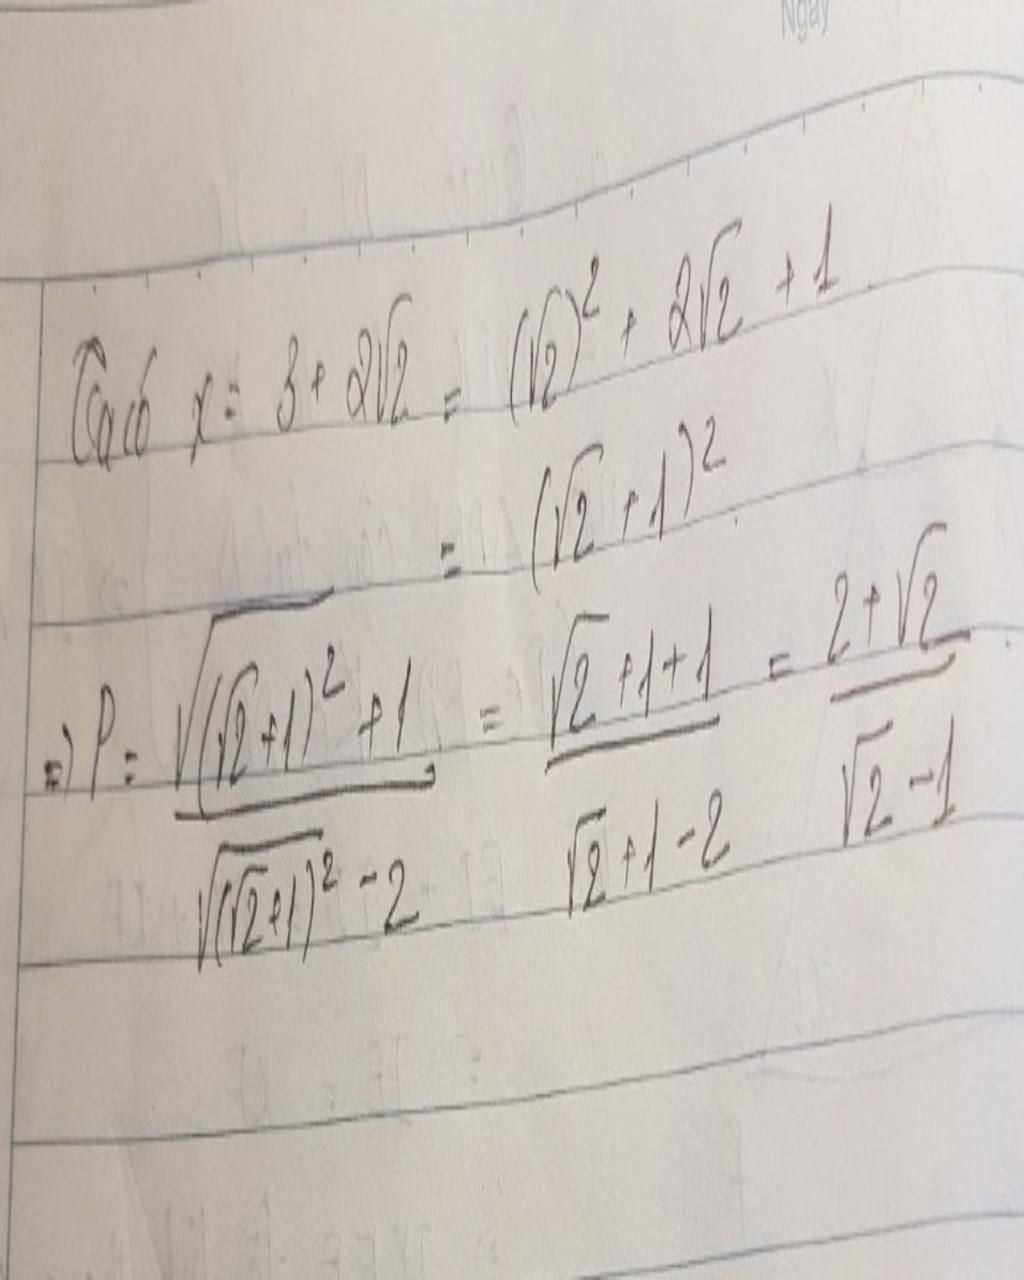 Ngày
Ta có x = 3 + 2√2 = (√2)² + 2√2 + 1
= (√2 + 1)²
=> P = (√(√2+1)² + 1)/(√(√2+1)² - 2) = (√2 + 1 + 1)/(√2 + 1 - 2) = (2 + √2)/(√2 - 1)